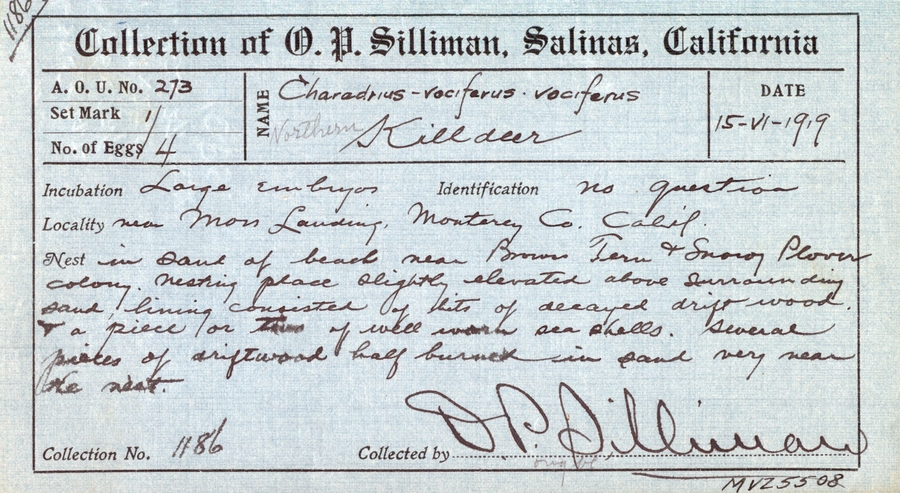 1186
Collection of O. P. Silliman, Salinas, California
A. O. U. No. 273
Set Mark 1/
No. of Eggs 4
NAME Charadrius-vociferus. vociferus
Northern Killdeer
DATE
15-VI-1919
Incubation Large Embryos Identification no question
Locality near Moss Landing, Monterey Co. Calif.
Nest in sand of beach near Brown Tern & Snowy Plover
colony. nesting place slightly elevated above surrounding
sand, lining consisted of bits of decayed drift wood.
& a piece or two of well worn sea shells. Several
pieces of driftwood half burned in sand very near
the nest.
Collection No. 1186 Collected by O.P. Silliman
MVZ5508